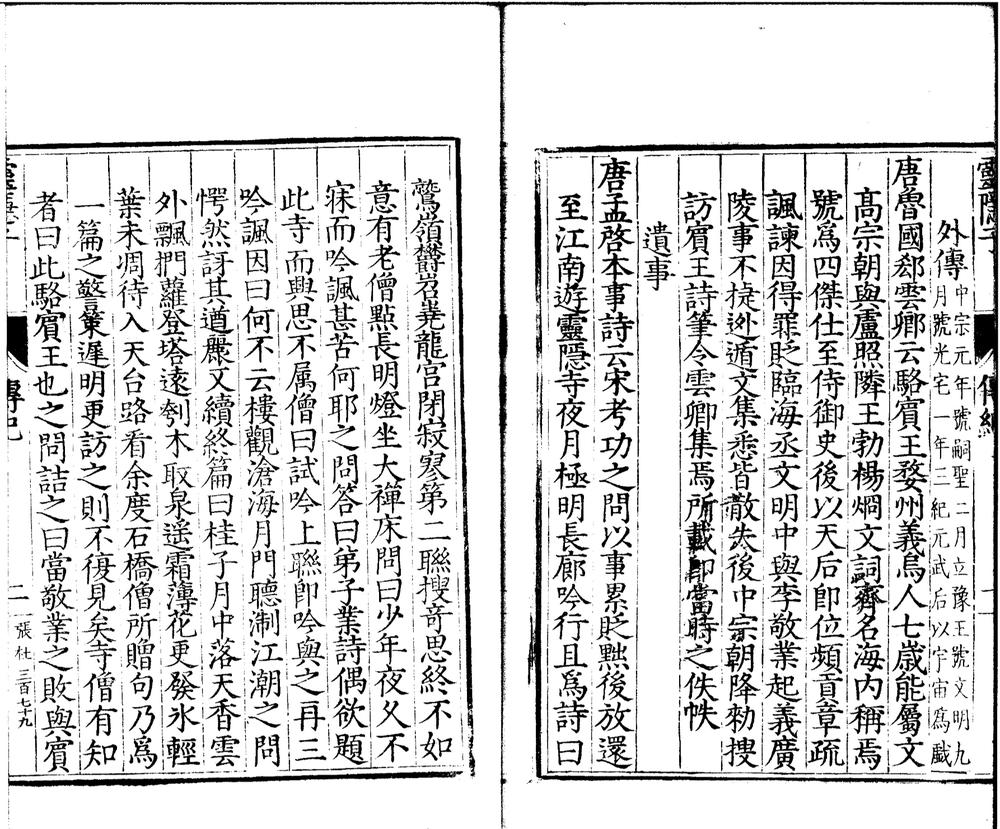 靈隱子
傳緒
外傳
中宗元年號嗣聖二月立豫王號文明九
月號光宅一年三紀元武后以宇宙為戲
唐魯國郄雲卿云駱賓王婺州義烏人七歲能屬文
高宗朝與盧照隣王勃楊烱文詞齊名海内稱焉
號爲四傑仕至侍御史後以天后即位頻貢章疏
諷諫因得罪貶臨海丞文明中與李敬業起義廣
陵事不捷逊遁文集悉皆散失後中宗朝降勑搜
訪賓王詩筆令雲卿集焉所載即當時之佚帙
遺事
唐孟啓本事詩云宋考功之問以事累貶黜後放還
至江南遊靈隱寺夜月極明長廊吟行且爲詩曰
鷲嶺鬱岧堯龍宫閉寂寥第二聯搜竒思終不如
意有老僧點長明燈坐大禪床問曰少年夜久不
寐而吟諷甚苦何耶之問答曰弟子業詩偶欲題
此寺而興思不属僧曰試吟上聯卽吟與之再三
吟諷因曰何不云樓觀滄海月門聽淛江潮之問
愕然訝其遒麗又續終篇曰桂子月中落天香雲
外飄捫蘿登塔遠刳木取泉遥霜薄花更發氷輕
葉未凋待入天台路看余度石橋僧所贈句乃爲
一篇之警策遲明更訪之則不復見矣寺僧有知
者曰此駱賓王也之問詰之曰當敬業之敗與賓
傳記
二
張杜三百七十九